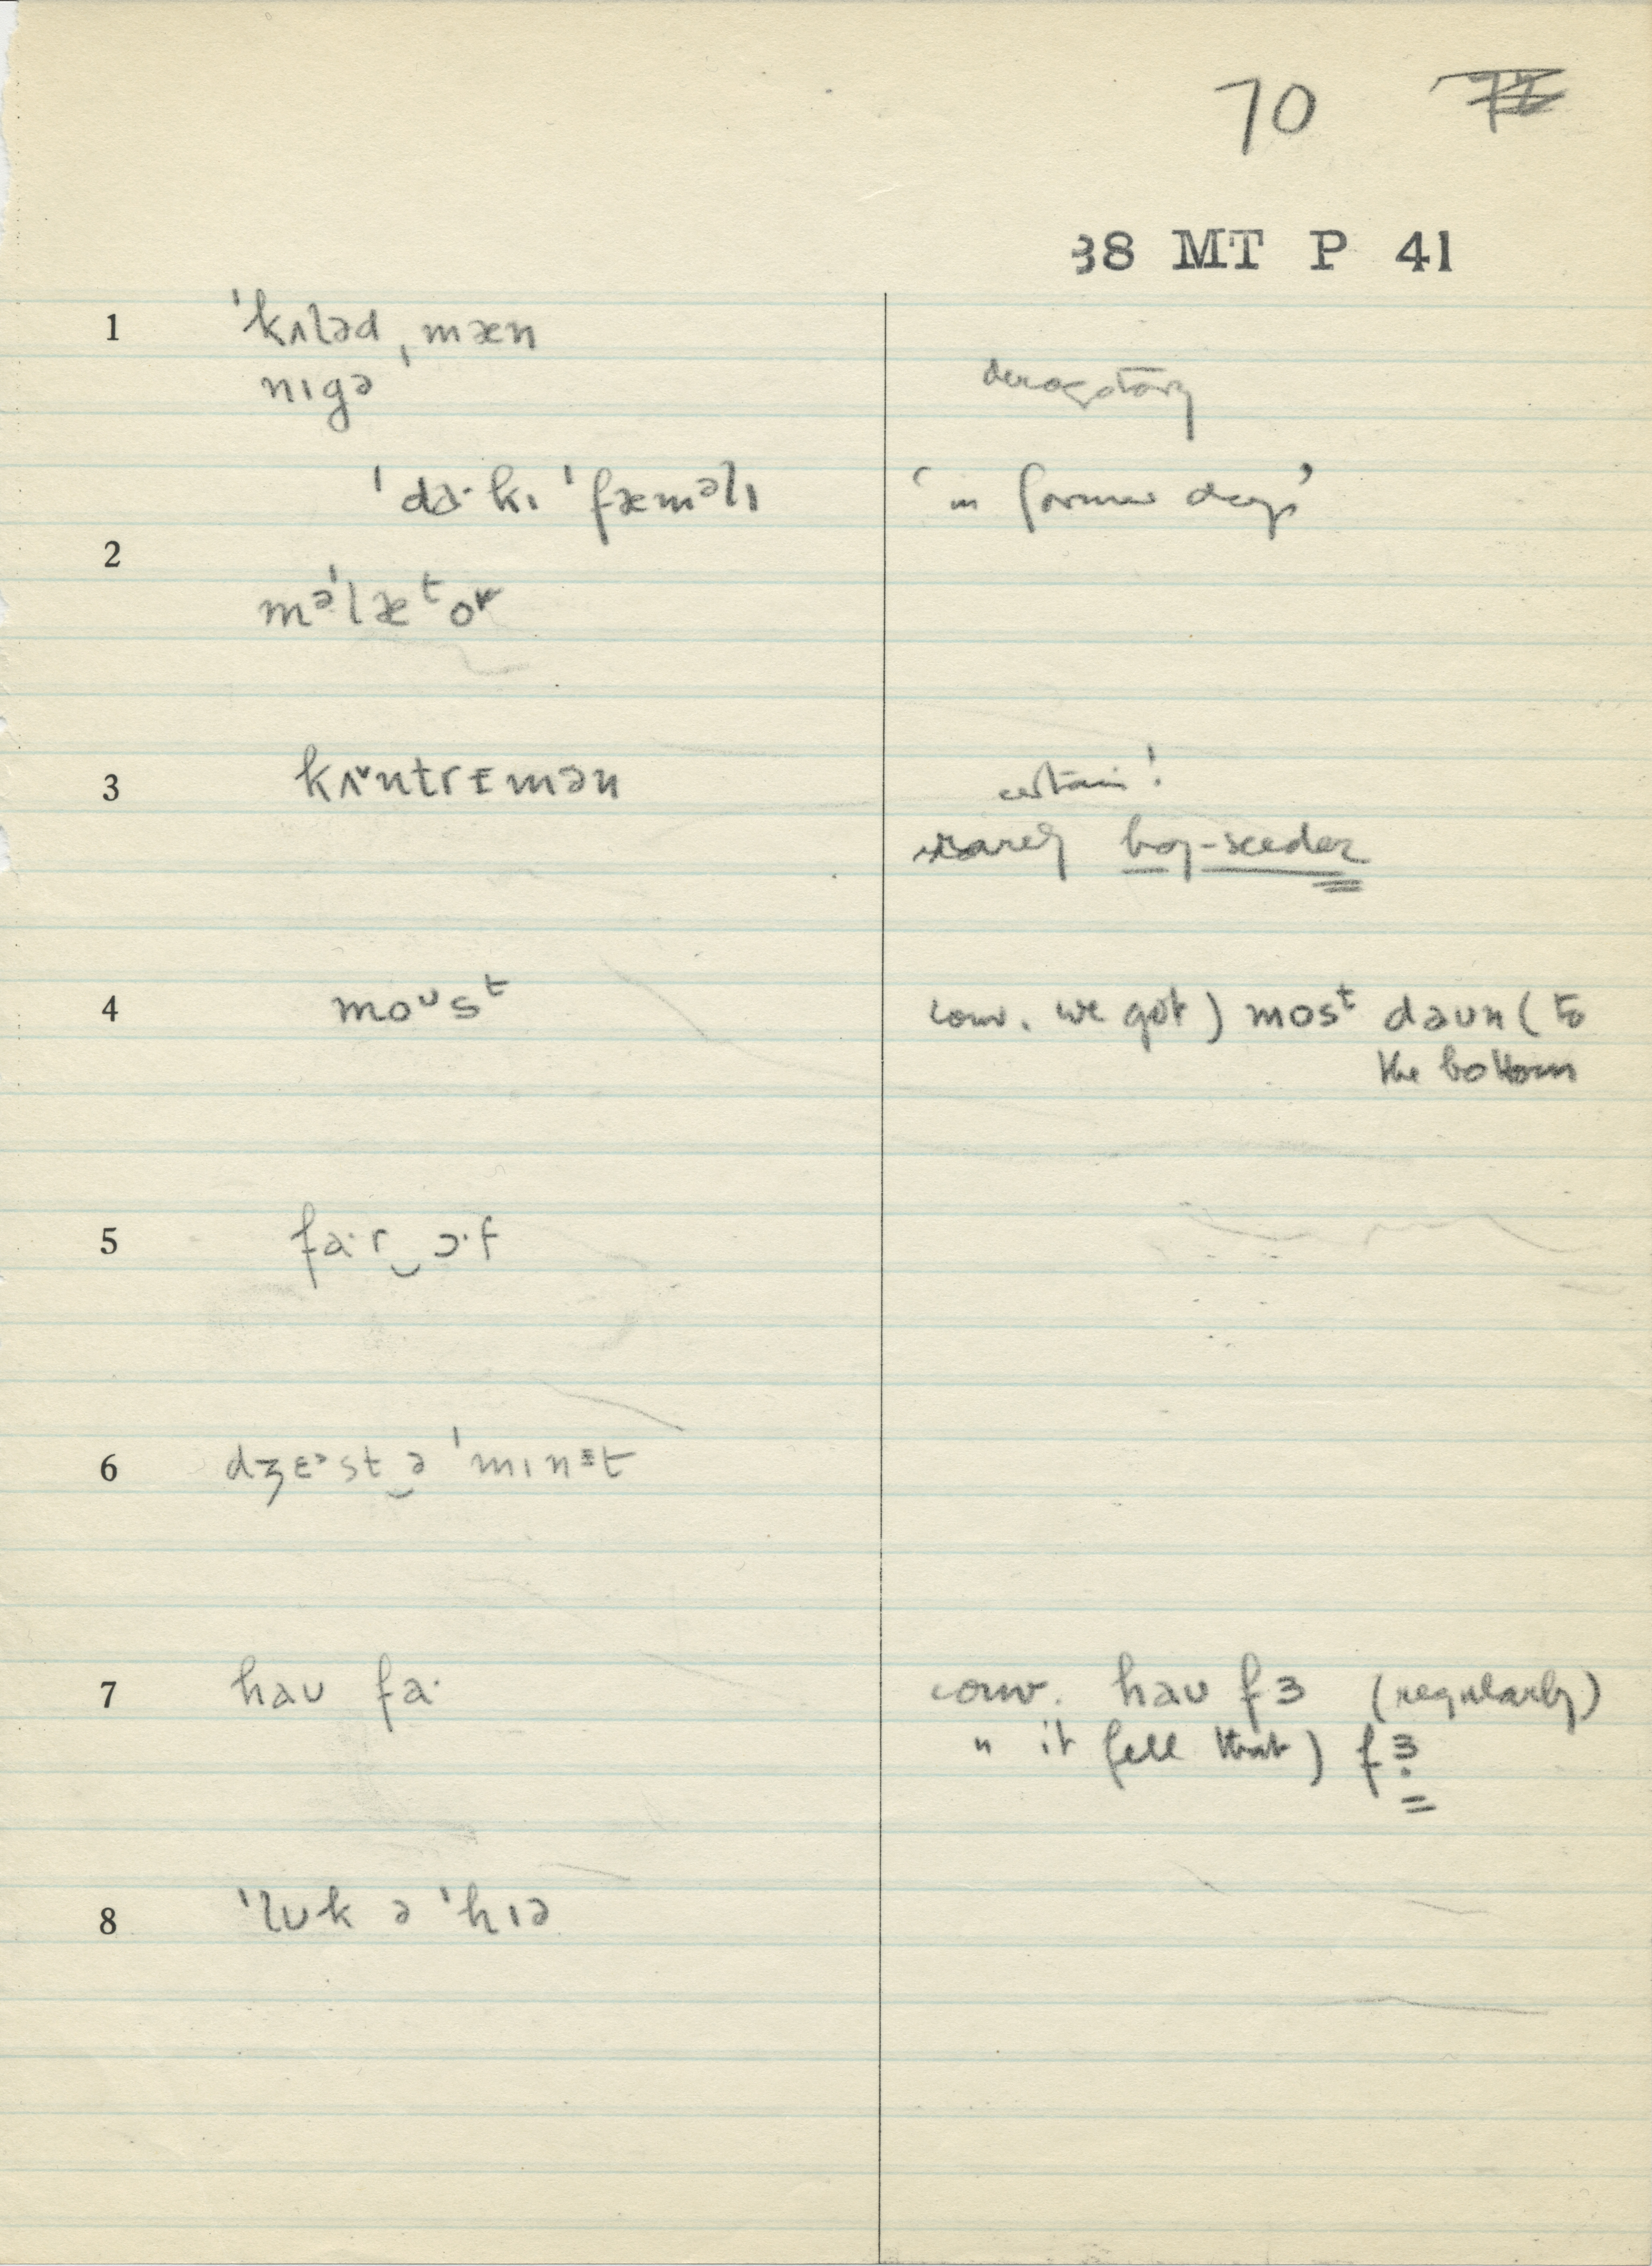 70
38 MT P 41
1 ˈkʌləd ˌmæn
nɪgə derogatory
ˈdaˑkɪ ˈfæməlɪ ‘in former days’
2
məˈlætoʳ
3 kʌ˅ntrɪmən certain!
rarely hay-seeder
4 moᴜsᵗ conv. we got) mosᵗ daʊn (to
the bottom
5 faˑr‿ɔˑf
6 dʒɛᵊst‿ə ˈmɪnᵻt
7 haʊ faˑ conv. haʊ fɜ (regularly)
" it fell that) fɜ̣
8 ˈlʊk ə ˈhɪə